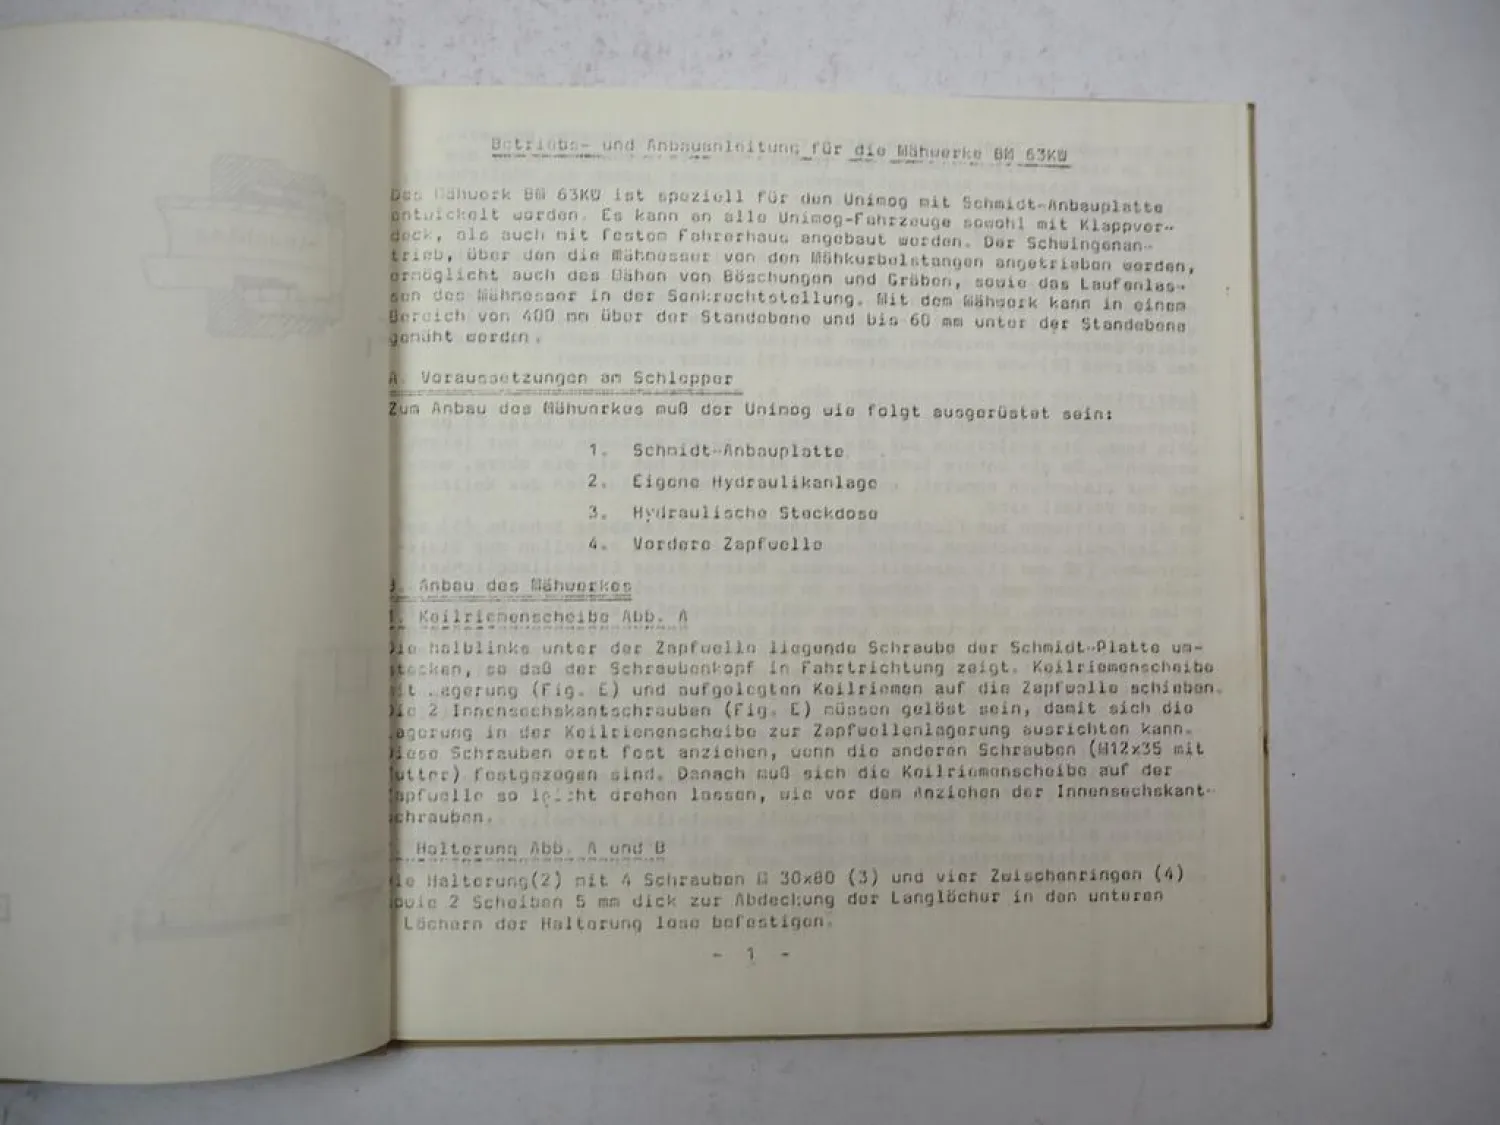 Betriebs- und Anbauanleitung für die Mähwerke BM 63KW
Das Mähwerk BM 63KW ist speziell für den Unimog mit Schmidt-Anbauplatte
entwickelt worden. Es kann an alle Unimog-Fahrzeuge sowohl mit Klappver-
deck, als auch mit festem Fahrerhaus angebaut werden. Der Schwingenan-
trieb, über den die Mähmesser von den Mähkurbelstangen angetrieben werden,
ermöglicht auch das Mähen von Böschungen und Gräben, sowie das Laufenlas-
sen des Mähmesser in der Senkrechtstellung. Mit dem Mähwerk kann in einem
Bereich von 400 mm über der Standebene und bis 60 mm unter der Standebene
gemäht werden.
A. Voraussetzungen am Schlepper
Zum Anbau des Mähwerkes muß der Unimog wie folgt ausgerüstet sein:
1. Schmidt-Anbauplatte
2. Eigene Hydraulikanlage
3. Hydraulische Steckdose
4. Vordere Zapfwelle
Anbau des Mähwerkes
1. Keilriemenscheibe Abb. A
Die halblinks unter der Zapfwelle liegende Schraube der Schmidt-Platte um-
stecken, so daß der Schraubenkopf in Fahrtrichtung zeigt. Keilriemenscheibe
mit Lagerung (Fig. E) und aufgelegten Keilriemen auf die Zapfwelle schieben.
Die 2 Innensechskantschrauben (Fig. E) müssen gelöst sein, damit sich die
Lagerung in der Keilriemenscheibe zur Zapfwellenlagerung ausrichten kann.
Diese Schrauben erst fest anziehen, wenn die anderen Schrauben (M12x35 mit
Mutter) festgezogen sind. Danach muß sich die Keilriemenscheibe auf der
Zapfwelle so leicht drehen lassen, wie vor dem Anziehen der Innensechskant-
schrauben.
Halterung Abb. A und B
Die Halterung(2) mit 4 Schrauben M 30x80 (3) und vier Zwischenringen (4)
sowie 2 Scheiben 5 mm dick zur Abdeckung der Langlöcher in den unteren
Löchern der Halterung lose befestigen.
- 1 -